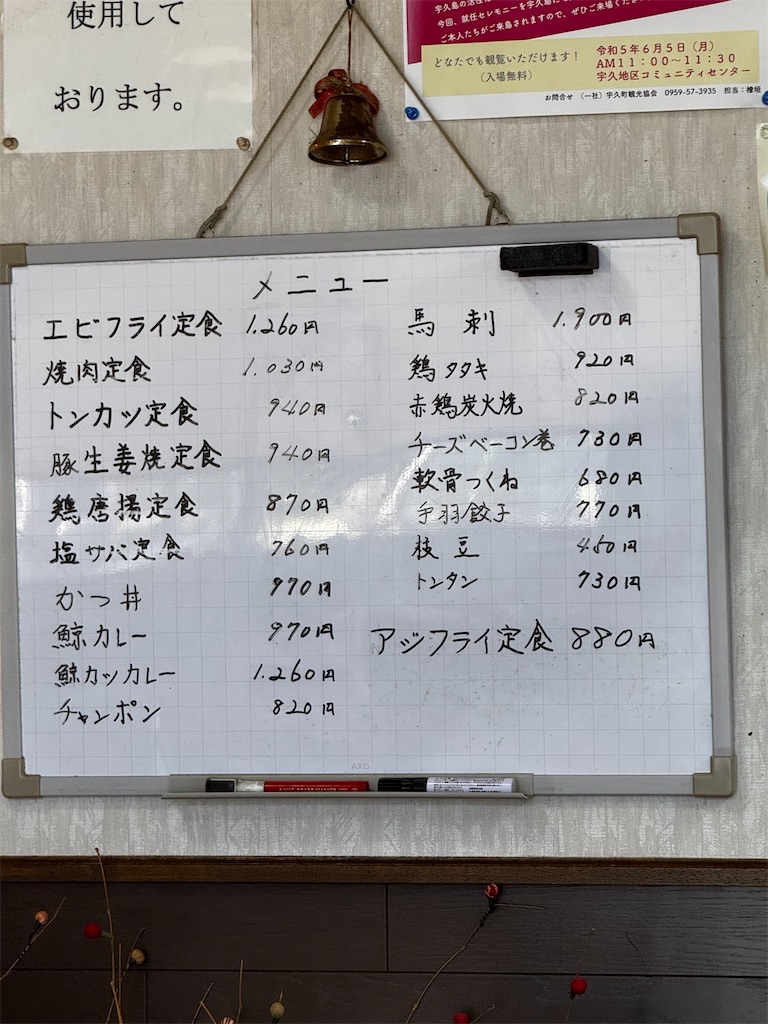 使用して
おります。
今回、就任セレモニーを宇久島にて
ご本人たちがご来島されますので、ぜひご来場くださ
どなたでも観覧いただけます！
（入場無料）
令和5年6月5日（月）
AM11：00〜11：30
宇久地区コミュニティセンター
お問合せ （一社）宇久町観光協会 0959-57-3935 担当：檜垣
メニュー
エビフライ定食 1.260円
焼肉定食 1.030円
トンカツ定食 940円
豚生姜焼定食 940円
鶏唐揚定食 870円
塩サバ定食 760円
かつ丼 970円
鯨カレー 970円
鯨カツカレー 1.260円
チャンポン 820円
馬刺 1.900円
鶏タタキ 920円
赤鶏炭火焼 820円
チーズベーコン巻 730円
軟骨つくね 680円
手羽餃子 770円
枝豆 450円
トンタン 730円
アジフライ定食 880円
AXIS